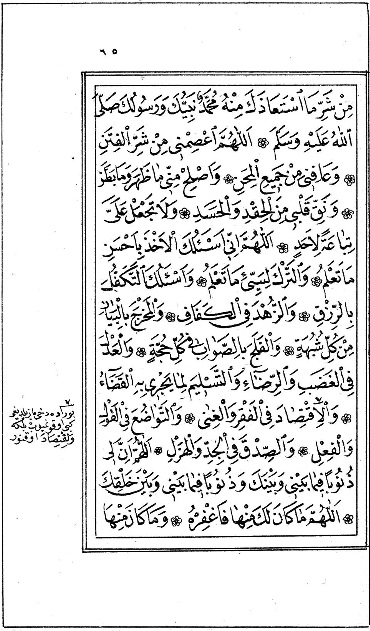 ٦٥
مِنْ شَرِّ مَا اسْتَعَاذَكَ مِنْهُ مُحَمَّدٌ نَبِيُّكَ وَرَسُولُكَ صَلَّى
اللهُ عَلَيْهِ وَسَلَّمَ ۞ اَللّٰهُمَّ اعْصِمْنِي مِنْ شَرِّ الْفِتَنِ
۞ وَعَافِنِي مِنْ جَمِيعِ الْمِحَنِ ۞ وَاَصْلِحْ مِنِّي مَا ظَهَرَ وَمَا بَطَنَ
۞ وَنَقِّ قَلْبِي مِنَ الْحِقْدِ وَالْحَسَدِ ۞ وَلَا تَجْعَلْ عَلَيَّ
تِبَاعَةً لِاَحَدٍ ۞ اَللّٰهُمَّ اِنِّي اَسْئَلُكَ الْاَخْذَ بِاَحْسَنِ
مَا تَعْلَمُ ۞ وَالتَّرْكَ لِسَيِّئِ مَا تَعْلَمُ ۞ وَاَسْئَلُكَ التَّكَفُّلَ
بِالرِّزْقِ ۞ وَالزُّهْدَ فِي الْكَفَافِ ۞ وَالْمَخْرَجَ بِالْبَيَانِ
مِنْ كُلِّ شُبْهَةٍ ۞ وَالْفَلَجَ بِالصَّوَابِ فِي كُلِّ حُجَّةٍ ۞ وَالْعَدْلَ
فِي الْغَضَبِ وَالرِّضَاءِ ۞ وَالتَّسْلِيمَ لِمَا يَجْرِي بِهِ الْقَضَاءُ
۞ وَالْاِقْتِصَادَ فِي الْفَقْرِ وَالْغِنٰى ۞ وَالتَّوَاضُعَ فِي الْقَوْلِ
وَالْفِعْلِ ۞ وَالصِّدْقَ فِي الْجِدِّ وَالْهَزْلِ ۞ اَللّٰهُمَّ اِنَّ لِي
ذُنُوبًا فِيمَا بَيْنِي وَبَيْنَكَ وَذُنُوبًا فِيمَا بَيْنِي وَبَيْنَ خَلْقِكَ
۞ اَللّٰهُمَّ مَا كَانَ لَكَ مِنْهَا فَاغْفِرْهُ ۞ وَمَا كَانَ مِنْهَا